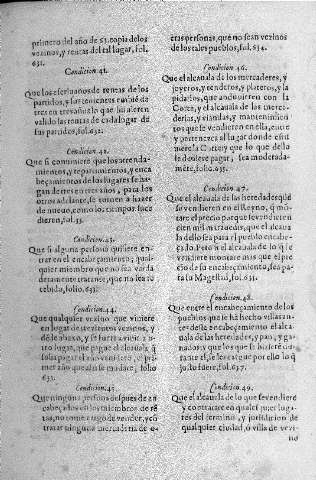 primero del año de 51. copia de los
vezinos, y rentas del tal lugar, fol.
631.
Condicion 41.
Que los escriuanos de rentas de los
partidos,
tres en tres años lo que huuieren
valido las rentas de cada lugar de
sus partidos, fol. 632.
Condicion 42.
Que si conuiniere que los arrenda-
mientos, y repartimientos, y enca
beçamientos de los lugares se ha-
gan de tres en tres años, para los
otros adelante, se tornen a hazer
de nueuo, como los tiempos suce
dieren, fol. 33.
Condicion 43.
Que si alguna persona quisiere en-
trar en el encabeçamiento, qual-
quier miembro que no sea verda
deramente tratante, que no sea re
cebido, folio, 633.
Condicion 44.
Que qualquier vezino que viuiere
en lugar de trezientos vezinos, y
dède abaxo, y se fuere a viuir a o-
tro lugar, que pague el
pagar el año venidero, el pri-
mer año que assi se mudare, folio
633.
Condicion 45.
Que ninguna persona despues de en
cabeçados los tales miembros de re
tas, no tome a cargo de vender, y cō
tratar ninguna mercaderia de o-
tras personas, que no sean vezinos
de los tales pueblos, fol. 634.
Condicion 46.
Que el alcauala de los mercaderes, y
joyeros, y tenderos, y plateros, y la
pidarios, que anduuieren con la
Corte, y el alcauala de las merca-
derias, y viandas, y mantenimien
tos que se vendieren en ella, entre
y pertenezca al lugar donde estu
uiere la Corte, y que lo que dello
se deuiere pagar, sea moderada-
mēte, folio 635.
Condicion 47.
Que el alcauala de las heredades que
se vendieren en el Reyno, q̄ mō-
tare el precio porque se vendieren
cien mil marauedis, que el alcaua
la dello sea para el pueblo encabe-
çado. Pero si el alcauala de lo q̄ se
vendiere montare mas que el pre
cio de su encabeçamiento, sea pa-
ra su Magestad, fol. 635.
Condicion 48.
Que entre el encabeçamiento de los
pueblos que se ha hecho y
ze deste encabeçamiento el alca
uala de las heredades, y pan, y ga-
nados: y que los que se hizieren
te el, se les cargue por ello lo q̄
justo fuere, fol. 637.
Condicion 49.
Que el alcauala de lo que se vendiere
y contratare en qualquier luga-
res del termino, y jurisdicion de
qualquier ciudad, ò villa de vezi-